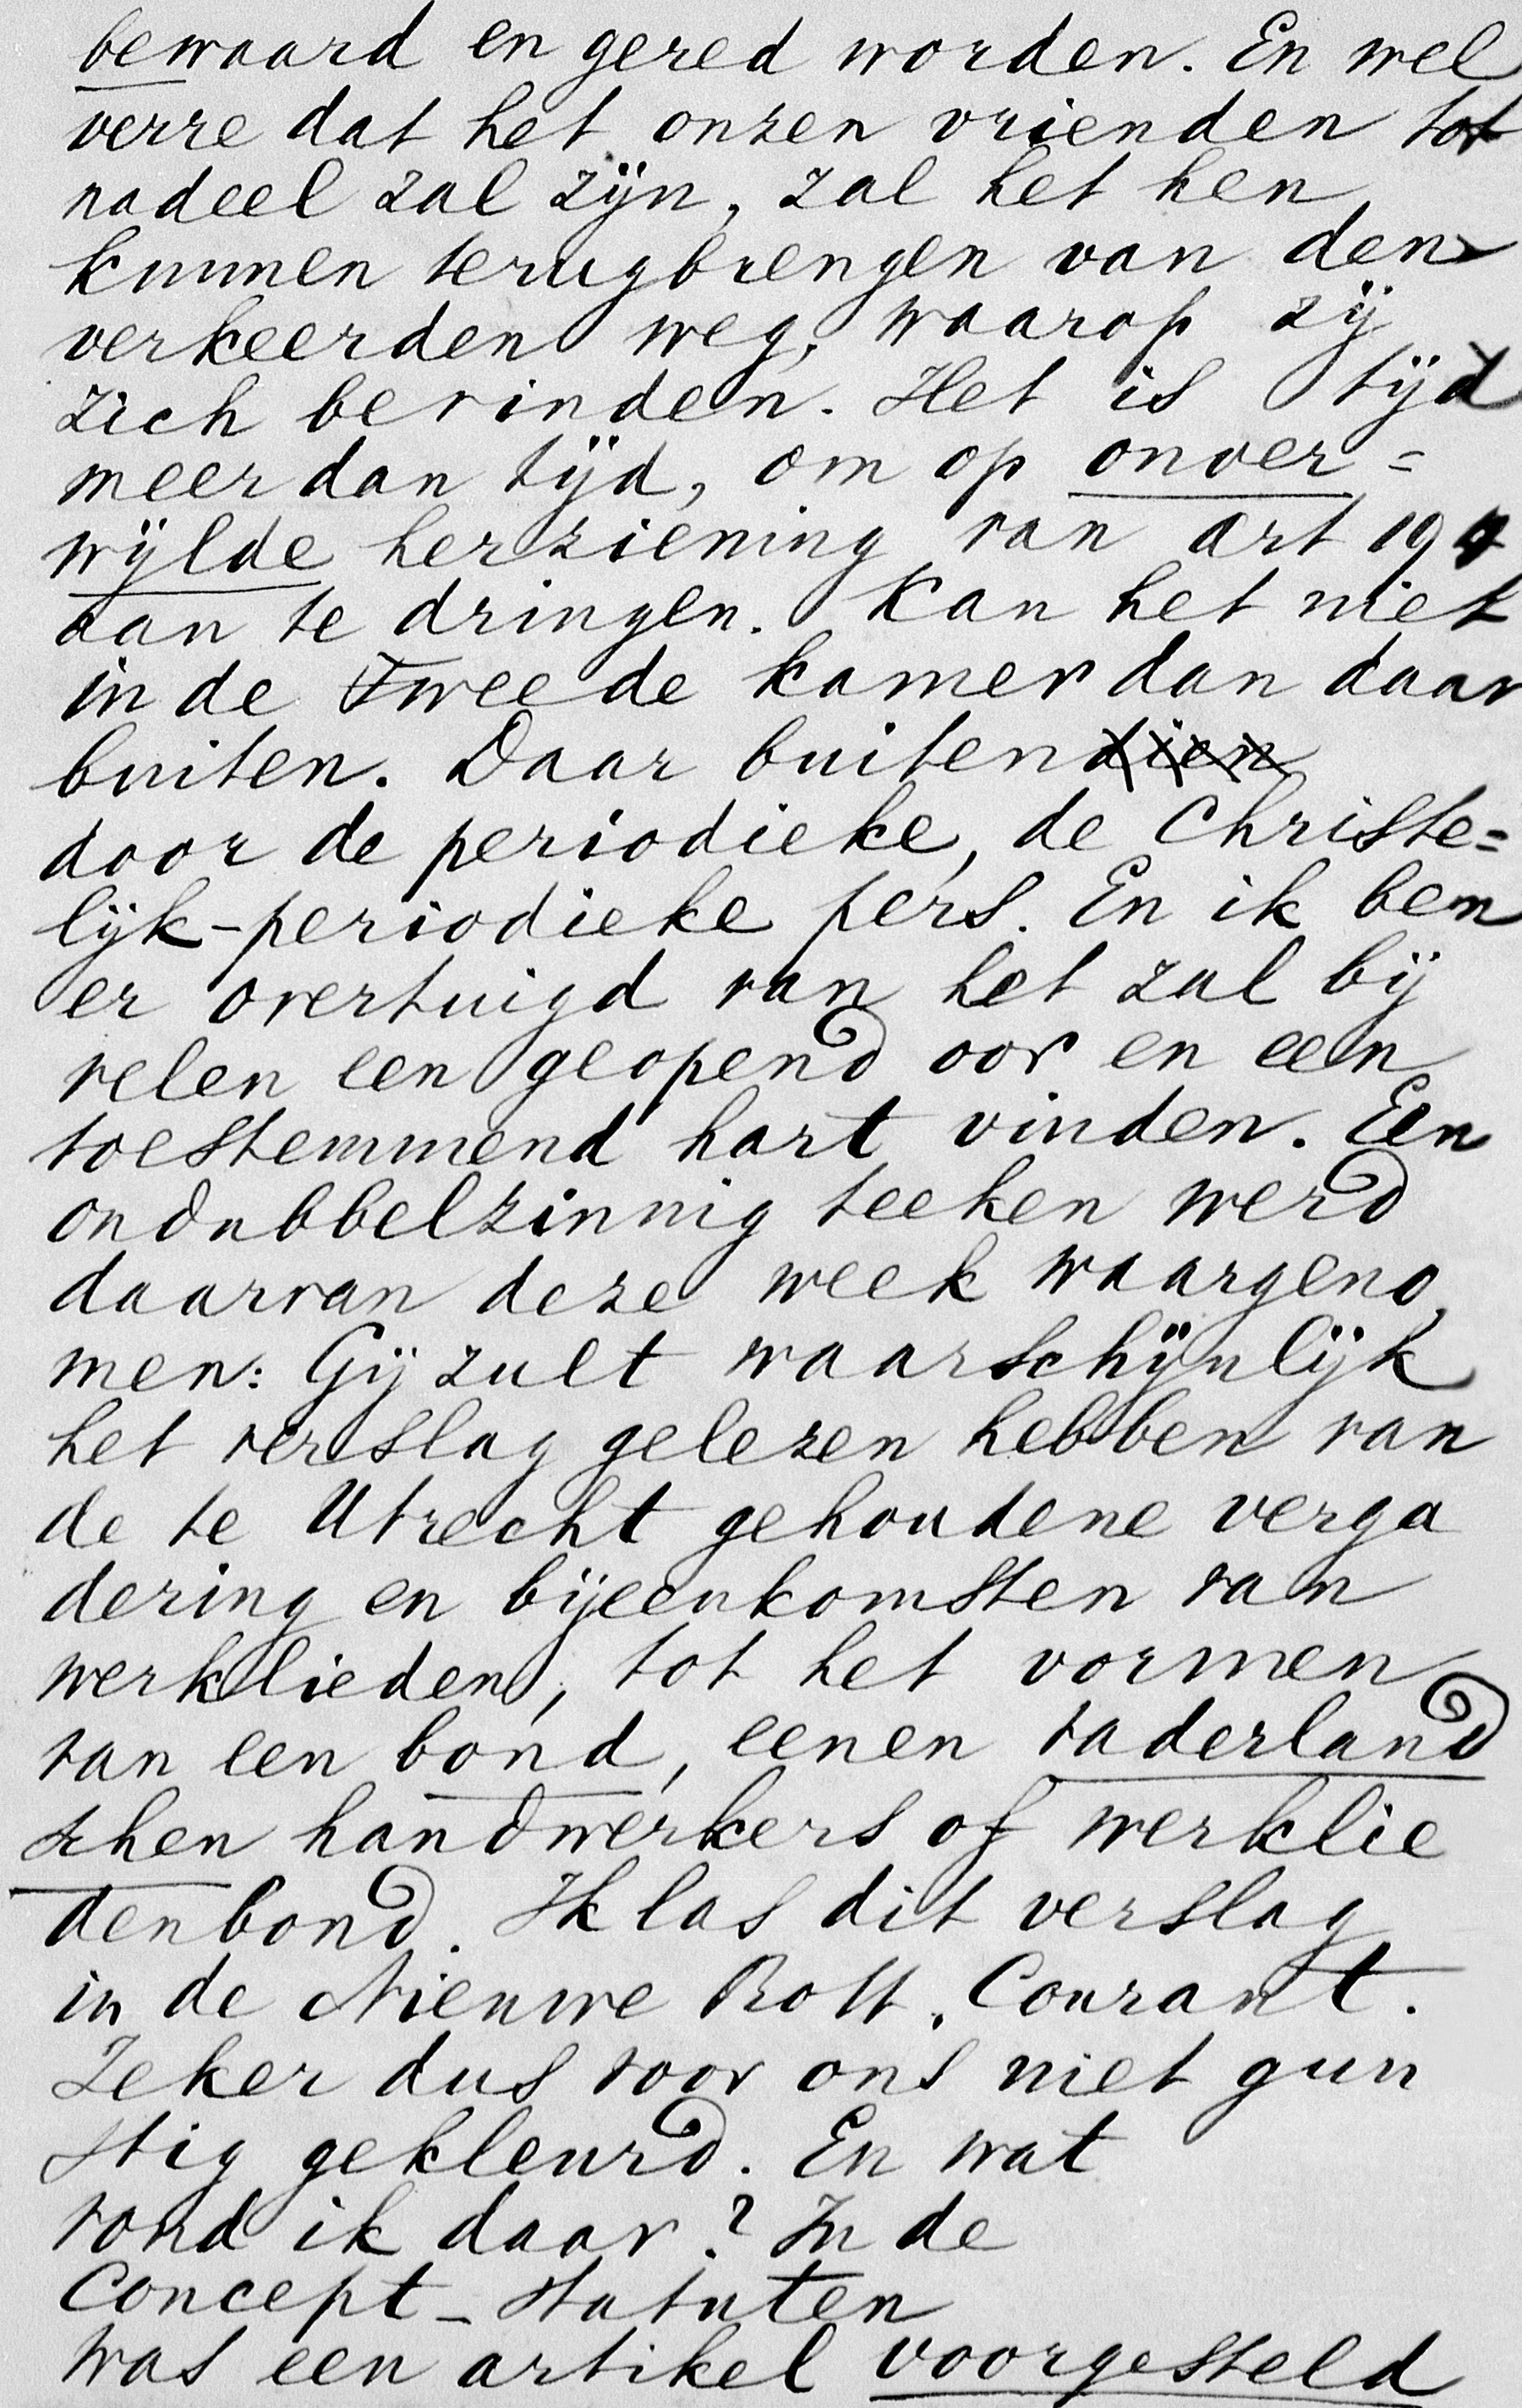 bewaard en gered worden. En wel
verre dat het onzen vrienden tot
nadeel zal zijn, zal het hen
kunnen terugbrengen van den
verkeerden weg, waarop zij
zich bevinden. Het is tijd
meer dan tijd, om op onver=
wijlde herziening van art 194
aan te dringen. Kan het niet
in de Tweede kamer dan daar
buiten. Daar buiten dien
door de periodieke, de Christe=
lijk-periodieke pers. En ik ben
er overtuigd van het zal bij
velen een geopend oor en een
toestemmend hart vinden. Een
ondubbelzinnig teeken werd
daarvan deze week waargeno
men: Gij zult waarschijnlijk
het verslag gelezen hebben van
de te Utrecht gehoudene verga
dering en bijeenkomsten van
werklieden, tot het vormen
van een bond, eenen vaderland
schen handwerkers of werklie
denbond. Ik las dit verslag
in de Nieuwe Rott. Courant.
Zeker dus voor ons niet gun
stig gekleurd. En wat
vond ik daar? In de
Concept-statuten
was een artikel voorgesteld